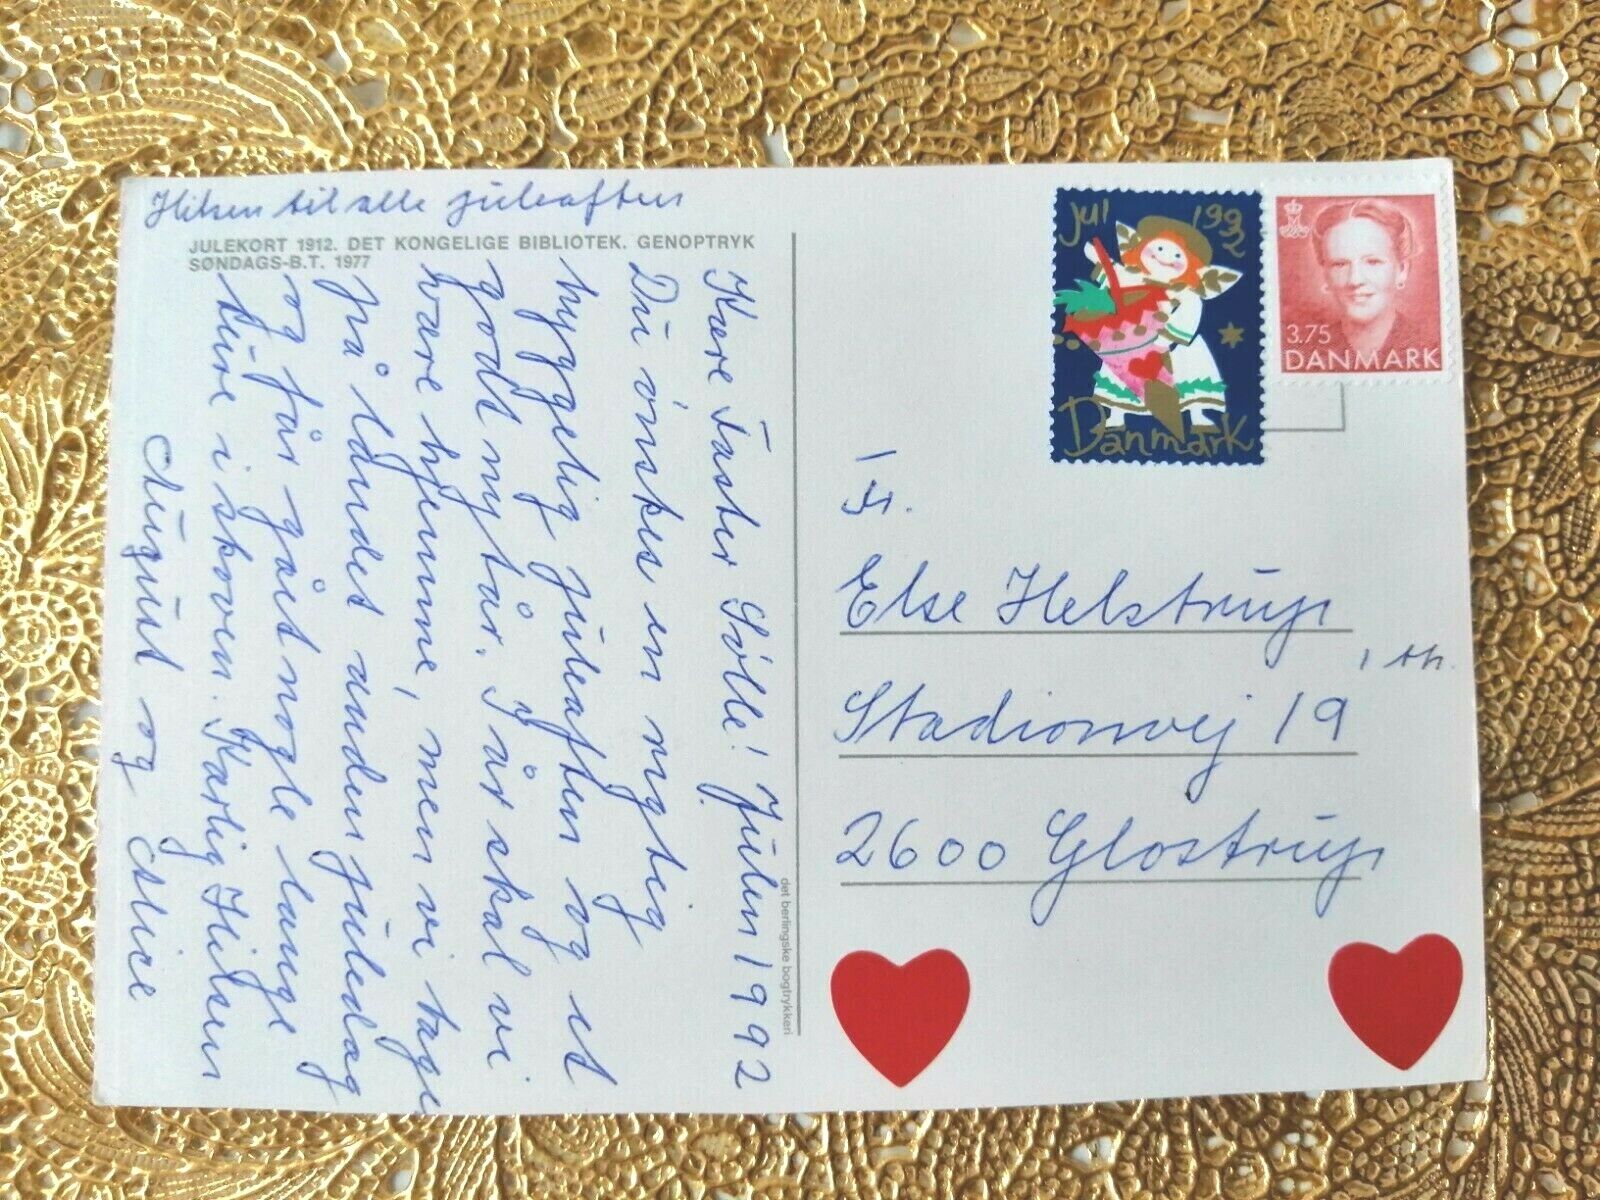 Hilsen til alle juleaften
JULEKORT 1912. DET KONGELIGE BIBLIOTEK. GENOPTRYK
SØNDAGS-B.T. 1977
Kære Faster Sölle! Julen 1992
Du önskes en rigtig
hyggelig juleaften og et
godt nytår. I år skal vi
være hjemme, men vi tager
på landet anden juledag
og får gået nogle lange
ture i skoven. Kærlig Hilsen
August og Alice
det berlingske bogtrykkeri
Jul 1992
Danmark
3.75
DANMARK
Fr.
Else Helstrup
Stadionvej 19 1 th.
2600 Glostrup